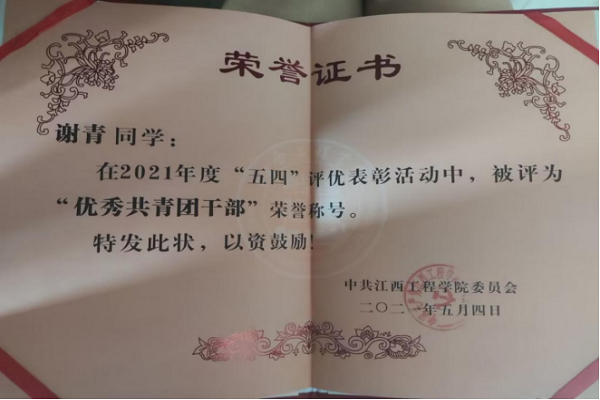 荣誉证书
谢青同学：
在2021年度“五四”评优表彰活动中，被评为
“优秀共青团干部”荣誉称号。
特发此状，以资鼓励！
中共江西工程学院委员会
二〇二一年五月四日